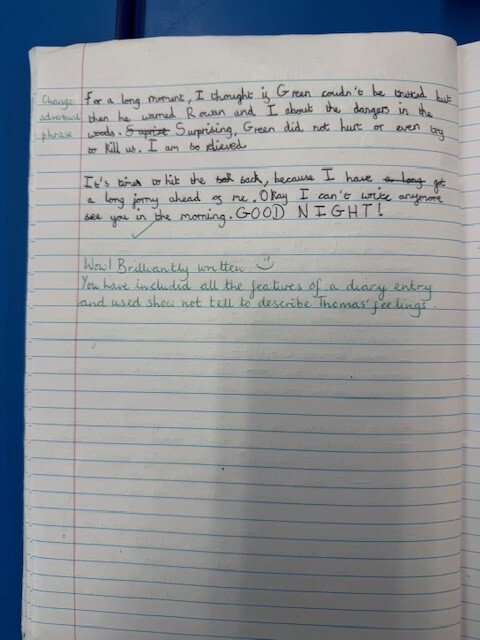 Change adverbial phrase
For a long moment, I thought if Green couldn't be trusted but
then he warned Rowan and I about the dangers in the
woods. Suprise Surprising, Green did not hurt or even try
to kill us. I am so rlieved
It's time to hit the sack, because I have a long got
a long jorny ahead of me. Okay I can't write anymore
see you in the morning. GOOD NIGHT!
Wow! Brilliantly written
You have included all the features of a diary entry
and used show not tell to describe Thomas' feelings.